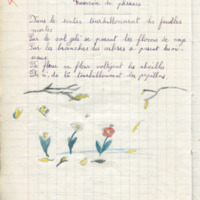 Inversion de phrases
Dans le sentier tourbillonnent les feuilles
mortes
Sur le sol gelé se posent les flocons de neige
Sur les branches des arbres se posent les
De fleur en fleur voltigent les abeilles
De ci, de là tourbillonnent les papillons